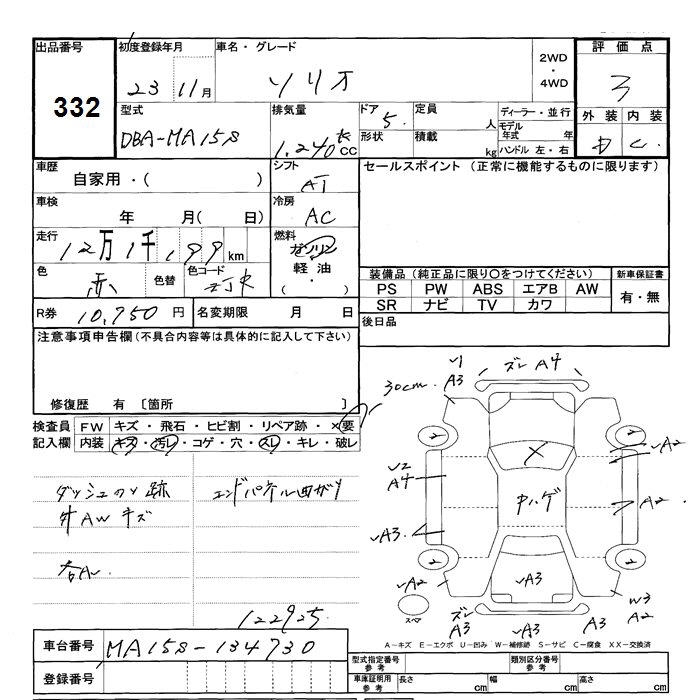 出品番号 初度登録年月 車名・グレード 評価点
332 23 11月 ソリオ 2WD・4WD 3
型式 排気量 ドア 定員 ディーラー・並行 外装 内装
DBA-MA15S 1.240 cc 5 人 モデル年式 年
形状 積載 kg ハンドル 左・右 D C
車歴 シフト セールスポイント (正常に機能するものに限ります)
自家用・( ) AT
車検 冷房
年 月( 日) AC
走行 燃料
12万1千199 km ガソリン
色 色替 色コード 軽油 装備品(純正品に限り○をつけてください) 新車保証書
赤 ( ・ ) PS PW ABS エアB AW 有・無
SR ナビ TV カワ
R券 10,950円 名変期限 月 日 後日品
注意事項申告欄(不具合内容等は具体的に記入して下さい)
修復歴 有 〔箇所 〕
検査員 FW キズ・飛石・ヒビ割・リペア跡・×要
記入欄 内装 キズ・汚レ・コゲ・穴・スレ・キレ・破レ
ダッシュのり跡 エンドパネル曲がり
外AWキズ
√1 A3 ズレ A4
30cm
2 2
√A2
√2 A4
×
中ハゲ
A2
√A3
2 2
√A2 √A3
スペア
ズレ A3 √A3 A3 W3 A2
122925
車台番号 MA15S-134730
登録番号
A-キズ E-エクボ U-凹み W-補修跡 S-サビ C-腐食 XX-交換済
型式指定番号 参考 類別区分番号 参考
車庫証明用 参考 長さ cm 幅 cm 高さ cm